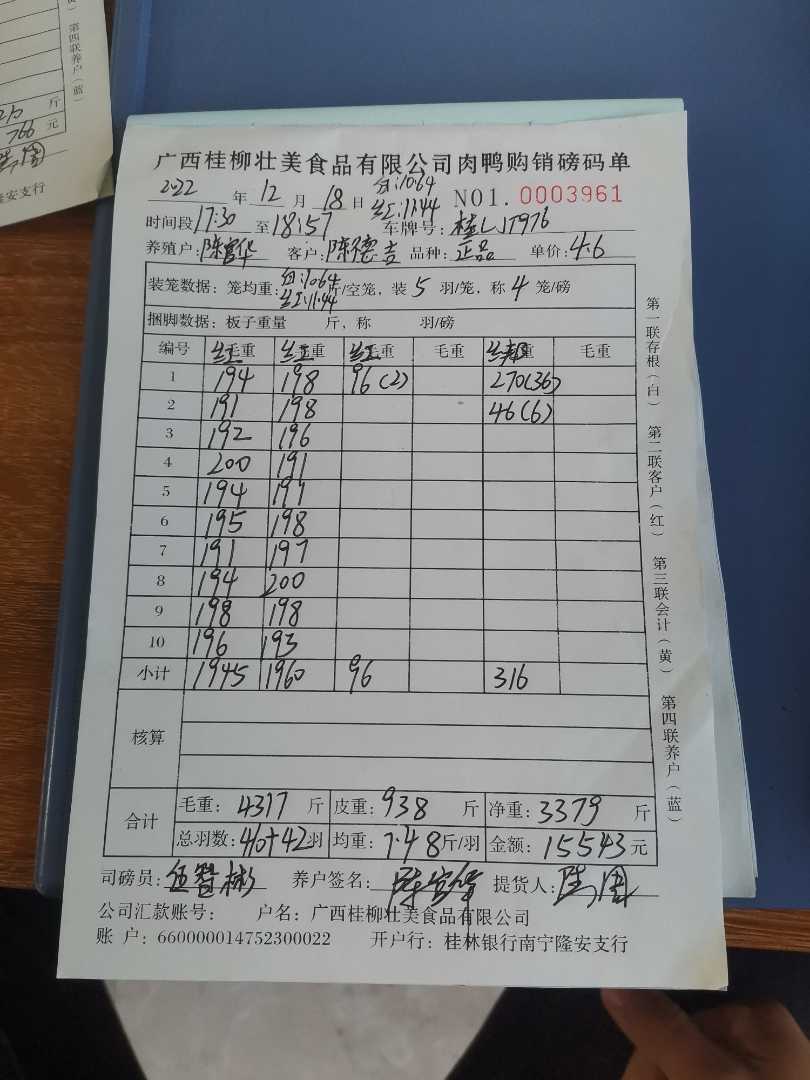 第四联养户（蓝）
斤
766 元
隆安支行
广西桂柳壮美食品有限公司肉鸭购销磅码单
2022 年 12 月 18 日 白:10.64 红:11.44 NO1.0003961
时间段 17:30 至 18:57 车牌号: 桂LJT976
养殖户: 陈官华 客户: 陈德吉 品种: 正品 单价: 4.6
装笼数据：笼均重: 白:10.64 红:11.44 斤/空笼，装 5 羽/笼，称 4 笼/磅
捆脚数据：板子重量 斤，称 羽/磅
编号 红毛重 红毛重 红毛重 毛重 毛重 毛重
1 194 198 96(2) 270(36)
2 191 198 46(6)
3 192 196
4 200 191
5 194 191
6 195 198
7 191 197
8 194 200
9 198 198
10 196 193
小计 1945 1960 96 316
核算
合计 毛重: 4317 斤 皮重: 938 斤 净重: 3379 斤
总羽数: 410+42 羽 均重: 7.48 斤/羽 金额: 15543 元
司磅员: 伍智彬 养户签名: 陈官华 提货人:
公司汇款账号： 户名：广西桂柳壮美食品有限公司
账 户：660000014752300022 开户行：桂林银行南宁隆安支行
第一联存根（白） 第二联客户（红） 第三联会计（黄） 第四联养户（蓝）